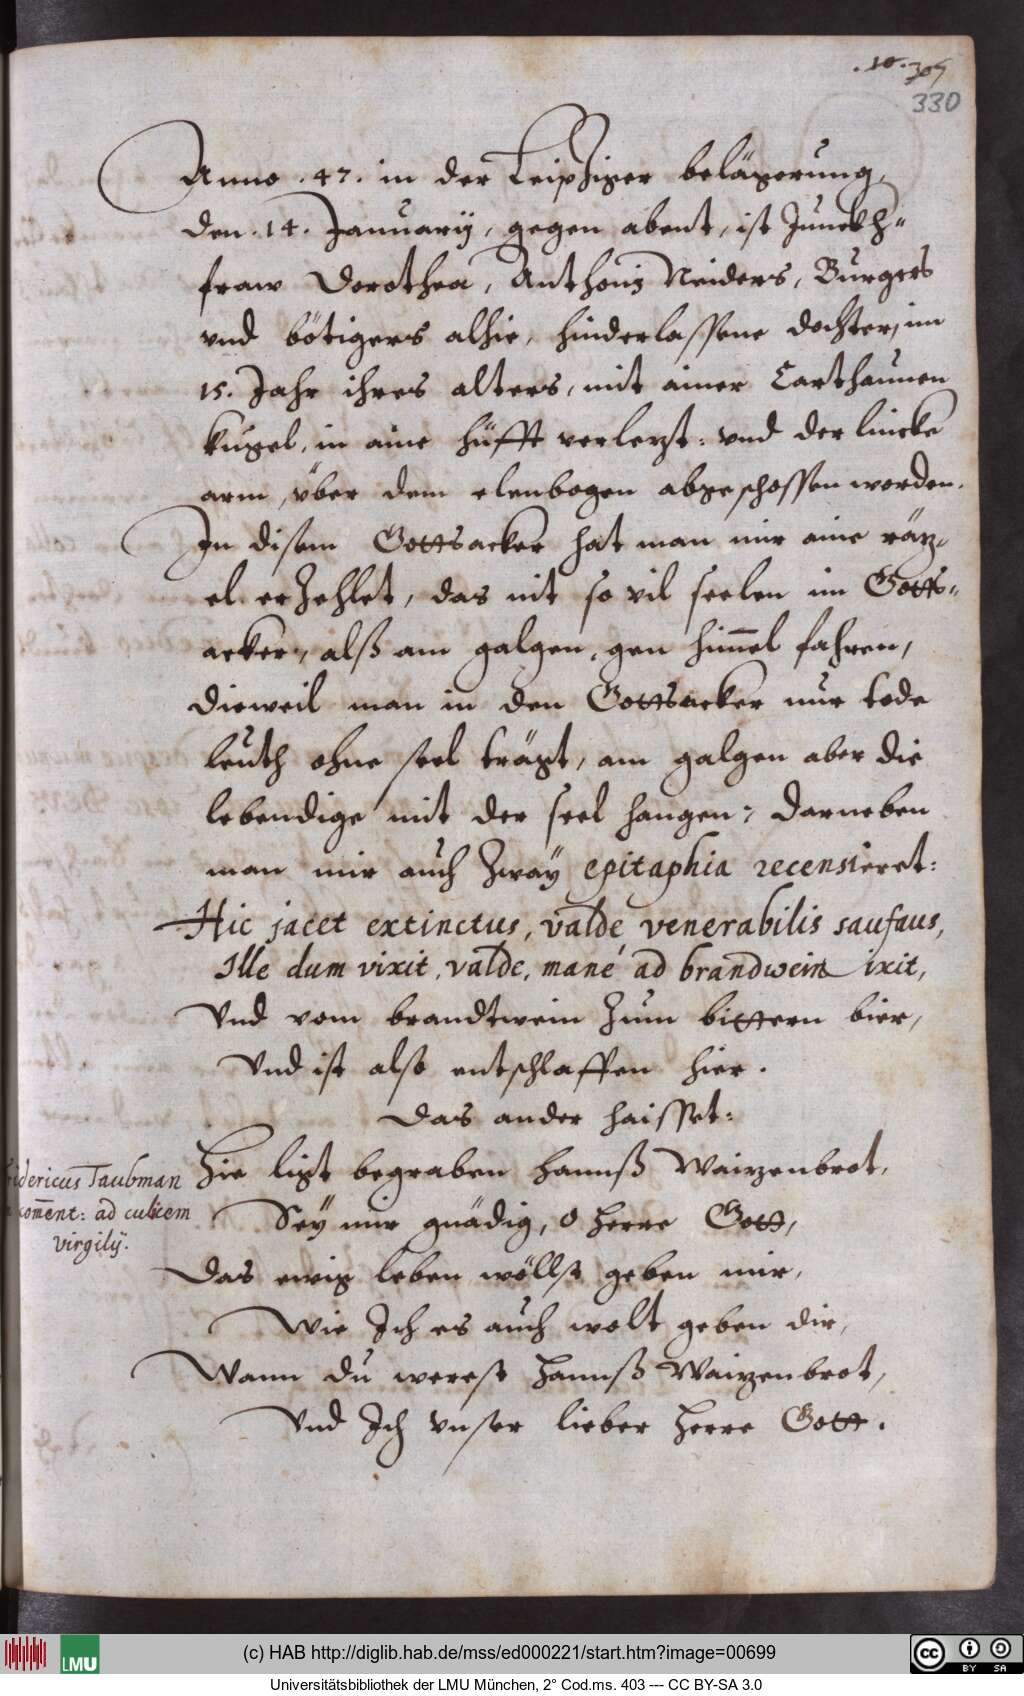 .10. 309
330
Anno .47. in der Leipziger belägerung,
den .14. Januarÿ, gegen abent, ist Junckh-
fraw Dorothea, Anthonÿ Neiders, Burgers
vnd bötigers alhie, hinderlassene dochter, im
15. Jahr ihres alters, mit ainer Carthaunen
kugel, in aine hüfft verlezt: vnd der lincke
arm, über dem elenbogen abgeschossen worden.
In disem Gottsacker hat man mir aine räz-
el erzehlet, das nit so vil seelen im Gotts-
acker, alß am galgen, gen him̄el fahren,
dieweil man in den Gottsacker nur tode
leuth ohne seel trägt, am galgen aber die
lebendige mit der seel hangen: darneben
man mir auch zwaÿ epitaphia recensieret:
Hic jacet extinctus, valdè venerabilis saufaus,
Ille dum vixit, valde, manè ad brandwein ixit,
Vnd vom brandtwein zum bittern bier,
Vnd ist also entschlaffen hier.
Das ander haisset:
Hie ligt begraben Hannß Waizenbrot,
Seÿ mir gnädig, o Herre Gott,
Das ewig leben wöllst geben mir,
Wie Ich es auch wolt geben dir,
Wann du werest Hannß Waizenbrot,
Vnd Ich vnser lieber Herre Gott.
idericus Taubman
com̄ent: ad culicem
virgilÿ.
LMU
(c) HAB http://diglib.hab.de/mss/ed000221/start.htm?image=00699
cc BY SA
Universitätsbibliothek der LMU München, 2° Cod.ms. 403 --- CC BY-SA 3.0